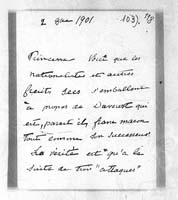 2 1901 103)
Princesse Voici que les
nationalistes et autres
fruits secs s'emballent
à propos de qui
est, paraît-il, franc maçon
tout comme son successeur
La vérité est qu'à la
suite de trois "attaques"